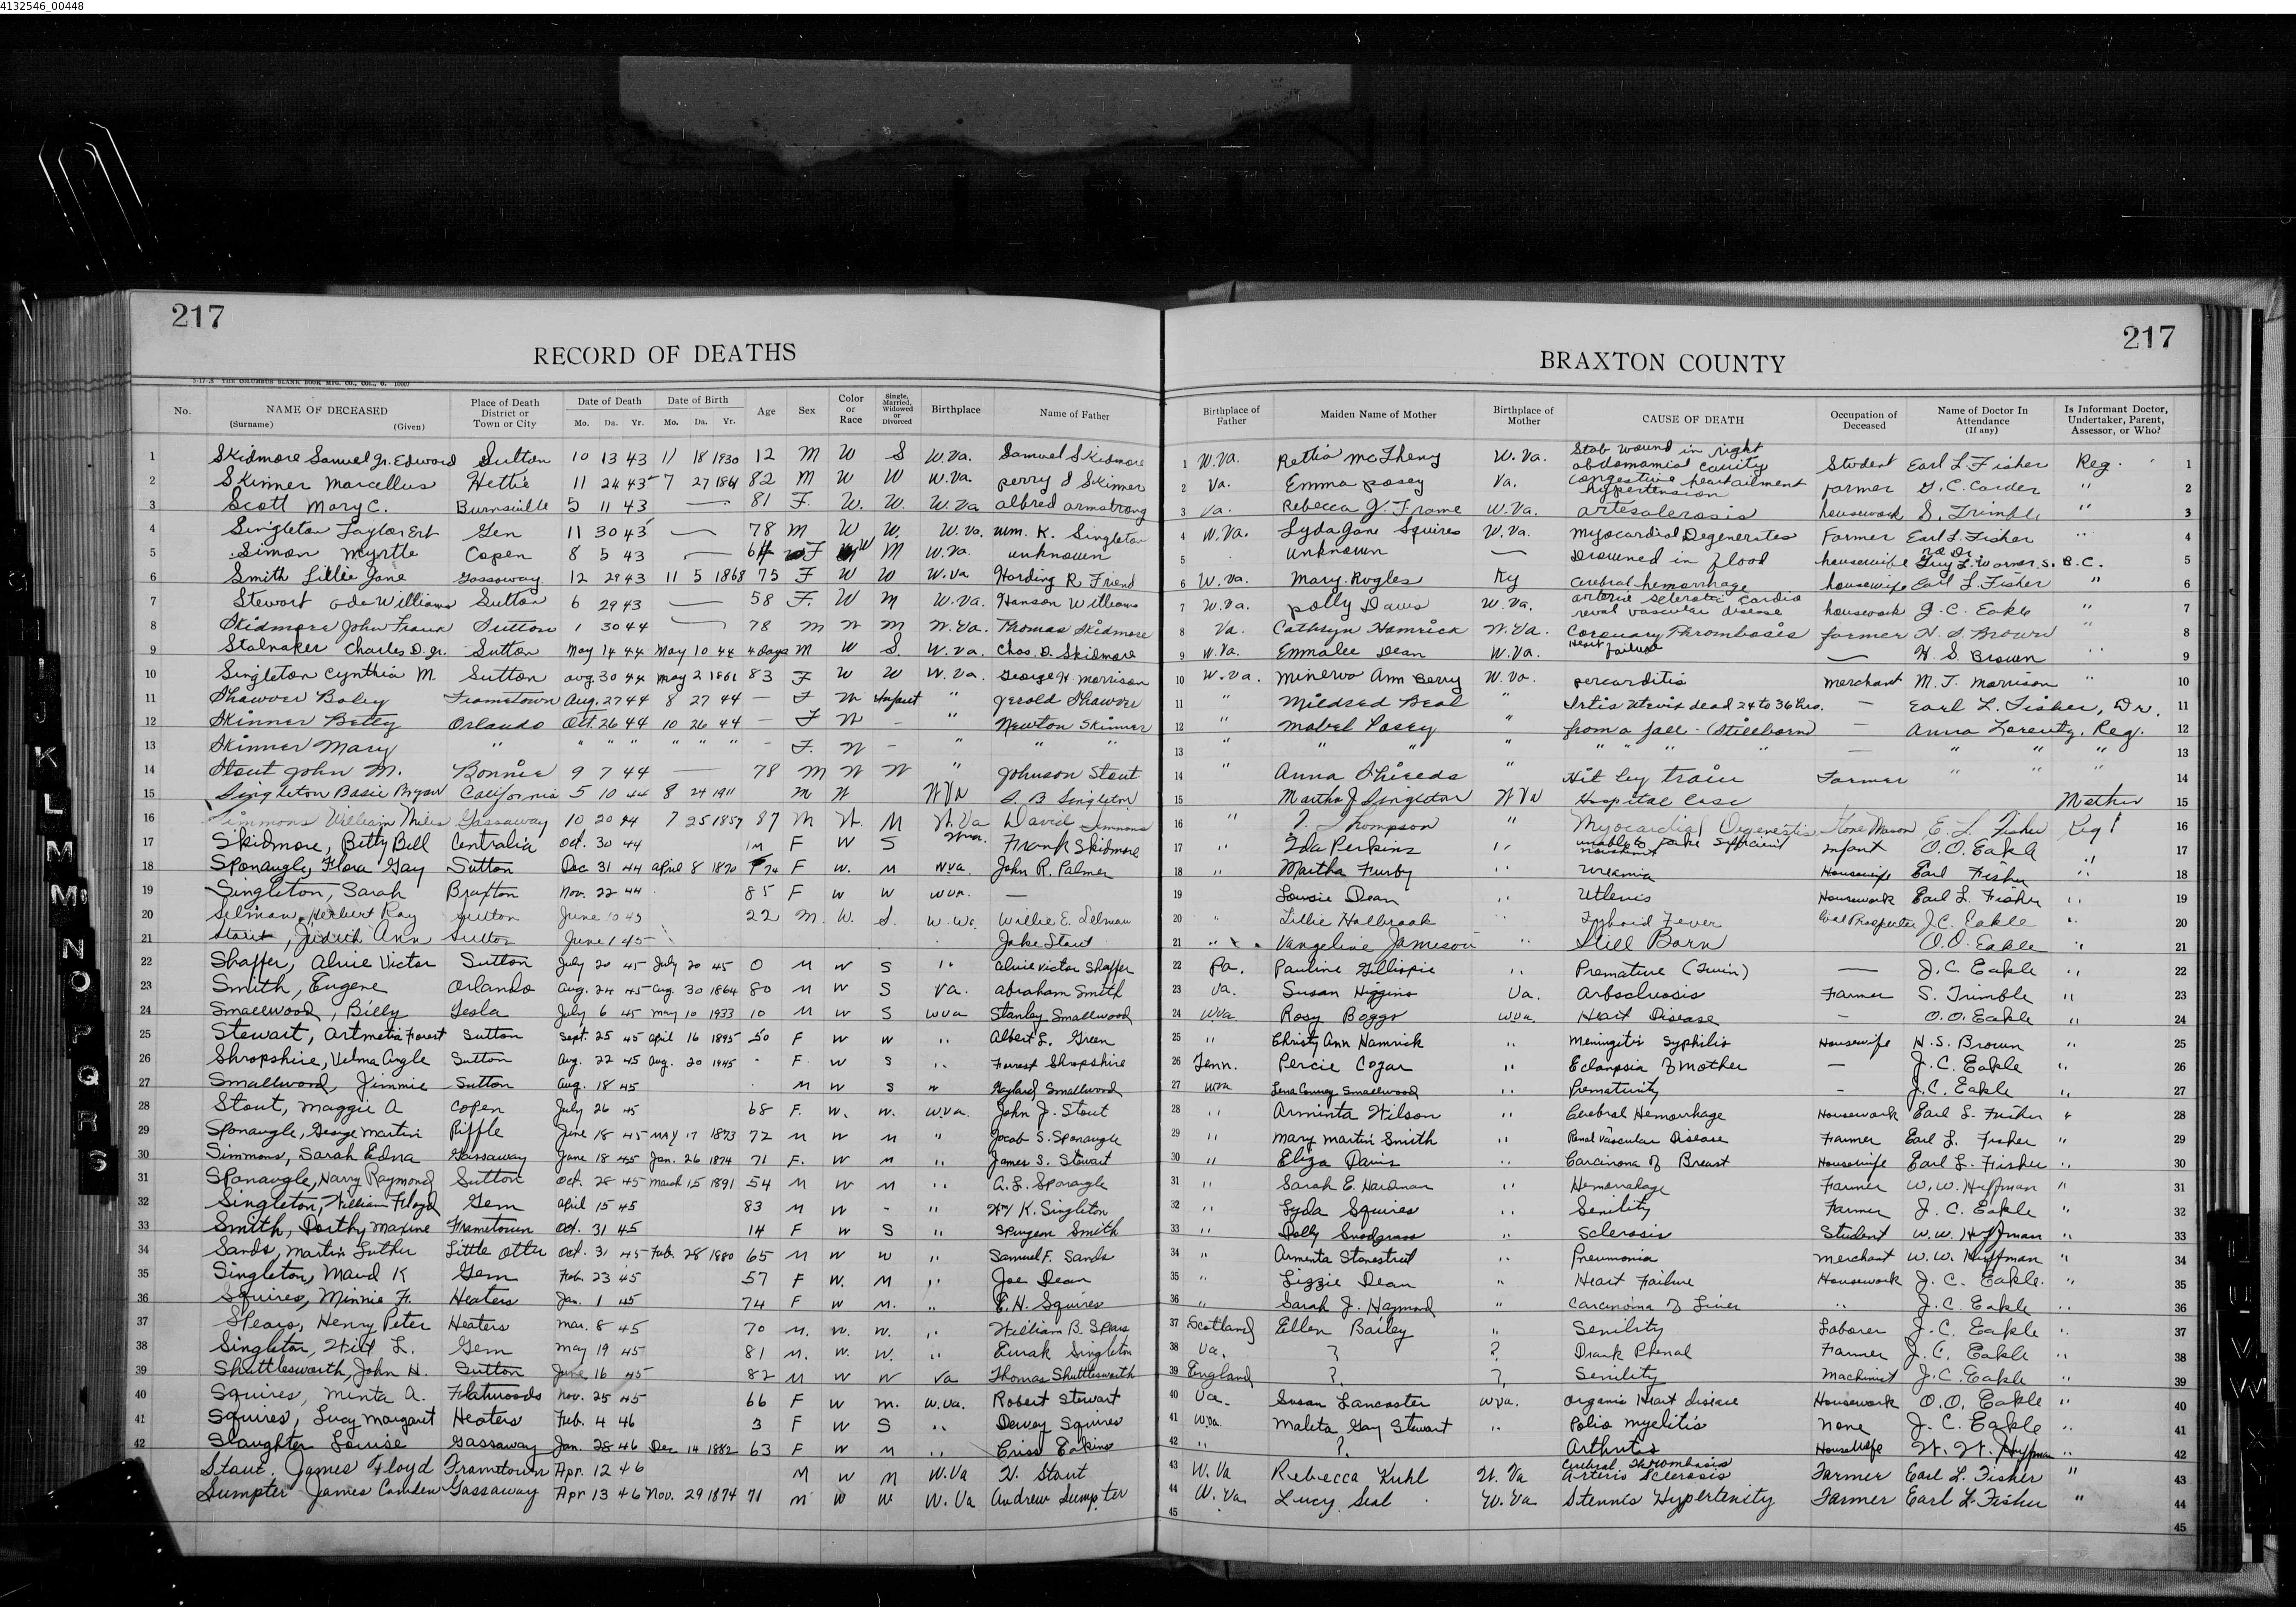 4132546_00448
217
217
RECORD OF DEATHS
BRAXTON COUNTY
No. NAME OF DECEASED (Surname) (Given) Place of Death District or Town or City Date of Death Mo. Da. Yr. Date of Birth Mo. Da. Yr. Age Sex Color or Race Single, Married, Widowed or Divorced Birthplace Name of Father Birthplace of Father Maiden Name of Mother Birthplace of Mother CAUSE OF DEATH Occupation of Deceased Name of Doctor In Attendance (If any) Is Informant Doctor, Undertaker, Parent, Assessor, or Who?
1 Skidmore Samuel Jr. Edward Sutton 10 13 43 11 18 1930 12 M W S W.Va. Samuel Skidmore 1 W.Va. Rettia McTheny W.Va. Stab wound in right abdomamial cavity Student Earl L Fisher Reg. 1
2 Skinner Marcellus Hettie 11 24 43 7 27 1861 82 M W W W.Va Perry Skinner 2 Va. Emma Posey Va. congestive heart ailment hypertension Farmer G.C. Corder " 2
3 Scott Mary C. Burnsville 5 11 43 — 81 F. W. W. W.Va albred armstrong 3 Va. Rebecca J. Frame W.Va. artesclerosis housework S. Trimble " 3
4 Singleton Taylor Ert Gem 11 30 43 — 78 M W W. W.Va. Wm. K. Singleton 4 W.Va. Lyda Jane Squires W.Va. Myocardial Degenerates Farmer Earl L. Fisher " 4
5 Simon Myrtle Copen 8 5 43 — 64 F W M W.Va. unknown 5 unknown — Drowned in flood housewife no Dr. Guy L. Warner S. B.C. 5
6 Smith Lillie Jane Gassaway 12 29 43 11 5 1868 75 F W W W.Va Harding R Friend 6 W.Va. Mary Rogles Ky Cerebral hemorrhage housewife Earl L Fisher " 6
7 Stewart Williams Sutton 6 29 43 — 58 F. W M W.Va. Hanson Williams 7 W.Va. Polly Daws W.Va. arterio sclerotic cardio renal vascular disease housework J.C. Eakle " 7
8 Skidmore John Frank Sutton 1 30 44 — 78 M W M W.Va. Thomas Skidmore 8 Va. Cathryn Hamrick W.Va. Coronary Thrombosis farmer H.S. Brown " 8
9 Stalnaker Charles D. Jr. Sutton May 14 44 May 10 44 4 days M W S. W.Va. Chas. D. Skidmore 9 W.Va. Emmalee Dean W.Va. Heart failure — H.S. Brown " 9
10 Singleton Cynthia M Sutton Aug. 30 44 May 2 1861 83 F W W W.Va. George W. Morrison 10 W.Va. Minerva Ann Berry W.Va. percarditis merchant M.T. Morrison " 10
11 Shawver Baby Frametown Aug. 27 44 8 27 44 — F W Infant " Jerold Shawver 11 " Mildred Beal " dead 24 to 36 hrs. — Earl L. Fisher, Dr. 11
12 Skinner Betty Orlando Oct. 26 44 10 26 44 — F W - " Newton Skinner 12 " Mabel Posey " from a fall - (stillborn) — Anna Lorentz, Reg. 12
13 Skinner Mary " " " " " " " - F. W - " " " 13 " " " " " " " " — " " " 13
14 Stout John M. Bonnie 9 7 44 — 78 M W W " Johnson Stout 14 " Anna Shields " Hit by train Farmer " " " 14
15 Singleton Basie Bryan California 5 10 44 8 24 1911 M W W Va S. B Singleton 15 Martha J Singleton W Va Hospital Case Mother 15
16 Simmons William Miles Gassaway 10 20 44 7 25 1857 87 M W. M W.Va David Simmons 16 " Thompson " Myocardial Degenestis Stone Mason E. L. Fisher Reg 16
17 Skidmore, Betty Bell Centralia Oct. 30 44 1M F W S Frank Skidmore 17 " Ida Perkins " unable to take sufficient Infant O.O. Eakle " 17
18 Sponaugle, Flora Gay Sutton Dec 31 44 April 8 1870 74 F W. M WVa John R. Palmer 18 " Martha Furby " Uremia Housewife Earl Fisher " 18
19 Singleton, Sarah Braxton Nov. 22 44 85 F W W WVa. — 19 Lousie Dean " Housework Earl L. Fisher " 19
20 Selman, Herbert Ray Sutton June 10 45 22 M. W. S. W.Va. Willie E. Selman 20 " Lillie Holbrook " Typhoid Fever Coal Prospector J.C. Eakle " 20
21 Stout, Judith Ann Sutton June 1 45 Jake Stout 21 " Vangeline Jameson " Still Born O.O. Eakle " 21
22 Shaffer, Alvie Victor Sutton July 20 45 July 20 45 0 M W S " Alvie Victor Shaffer 22 Pa. Pauline Gillispie " Premature (Twin) — J.C. Eakle " 22
23 Smith, Eugene Orlando Aug. 24 45 Aug. 30 1864 80 M W S Va. Abraham Smith 23 Va. Susan Higgins Va. Farmer S. Trimble " 23
24 Smallwood, Billy Tesla July 6 45 May 10 1933 10 M W S WVa Stanley Smallwood 24 WVa Rosy Boggs WVa. Heart Disease - O.O. Eakle " 24
25 Stewart, Artmetia Forest Sutton Sept. 25 45 April 16 1895 50 F W W " Albert L. Green 25 " Christy Ann Hamrick " Meningitis Syphilis Housewife H.S. Brown " 25
26 Shropshire, Velma Angle Sutton Aug. 22 45 Aug. 20 1945 - F W S " Forrest Shropshire 26 Tenn. Percie Cogar " Eclampsia of Mother — J.C. Eakle " 26
27 Smallwood, Jimmie Sutton Aug. 18 45 M W S " Gayland Smallwood 27 WVa Smallwood " Prematurity - J.C. Eakle " 27
28 Stout, Maggie A Copen July 26 45 68 F. W. W. WVa. John J. Stout 28 " Arminta Wilson " Cerebral Hemorrhage Housework Earl L. Fisher " 28
29 Sponaugle, George Martin Riffle June 18 45 May 17 1873 72 M W M " Jacob S. Sponaugle 29 " Mary Martin Smith " Renal Vascular Disease Farmer Earl L. Fisher " 29
30 Simmons, Sarah Edna Gassaway June 18 45 Jan. 26 1874 71 F. W M " James S. Stewart 30 " Eliza Davis " Carcinoma of Breast Housewife Earl L. Fisher " 30
31 Sponaugle, Harry Raymond Sutton Oct. 28 45 March 15 1891 54 M W M " A.L. Sponaugle 31 " Sarah E. Hardman " Hemorrhage Farmer W.W. Huffman " 31
32 Singleton, William Floyd Gem April 15 45 83 M W - " Wm K. Singleton 32 " Lyda Squires " Senility Farmer J.C. Eakle " 32
33 Smith, Dorthy Maxine Frametown Oct. 31 45 14 F W S " Spurgeon Smith 33 " Dolly Snodgrass " Sclerosis Student W.W. Huffman " 33
34 Sands, Martin Luther Little Otter Oct. 31 45 Feb. 28 1880 65 M W W " Samuel F. Sands 34 " Arminta Stonestreet " Pneumonia Merchant W.W. Huffman " 34
35 Singleton, Maud K Gem Feb. 23 45 57 F W. M " Joe Dean 35 " Lizzie Dean " Heart Failure Housework J.C. Eakle. " 35
36 Squires, Minnie F. Heaters Jan. 1 45 74 F W M. " E.H. Squires 36 " Sarah J. Haymond " Carcinoma of Liver " J.C. Eakle " 36
37 Spears, Henry Peter Heaters Mar. 8 45 70 M. W. W. " William B. Spears 37 Scotland Ellen Bailey " Senility Laborer J.C. Eakle " 37
38 Singleton, Will L. Gem May 19 45 81 M. W. W. " Singleton 38 Va. ? ? Drank Phenal Farmer J.C. Eakle " 38
39 Shuttlesworth, John H. Sutton June 16 45 82 M W W Va Thomas Shuttlesworth 39 England ? ? Senility Machinist J.C. Eakle " 39
40 Squires, Minta A. Flatwoods Nov. 25 45 66 F W M. W.Va. Robert Stewart 40 Va. Susan Lancaster WVa. Organic Heart disease Housework O.O. Eakle " 40
41 Squires, Lucy Margaret Heaters Feb. 4 46 3 F W S " Dewey Squires 41 W.Va. Maleta Gay Stewart " Polio myelitis None J.C. Eakle " 41
42 Slaughter Louise Gassaway Jan. 28 46 Dec 14 1882 63 F W M " Criss Eakins 42 " ? Arthritis Housewife W.W. Huffman " 42
Stout, James Floyd Frametown Apr. 12 46 M W M W.Va W. Stout 43 W.Va Rebecca Kuhl W.Va Cerebral Thrombosis Arteris Sclerosis Farmer Earl L. Fisher " 43
Sumpter James Camden Gassaway Apr 13 46 Nov. 29 1874 71 M W W W.Va Andrew Sumpter 44 W.Va. Lucy W.Va Hypertenity Farmer Earl L. Fisher " 44
45 45